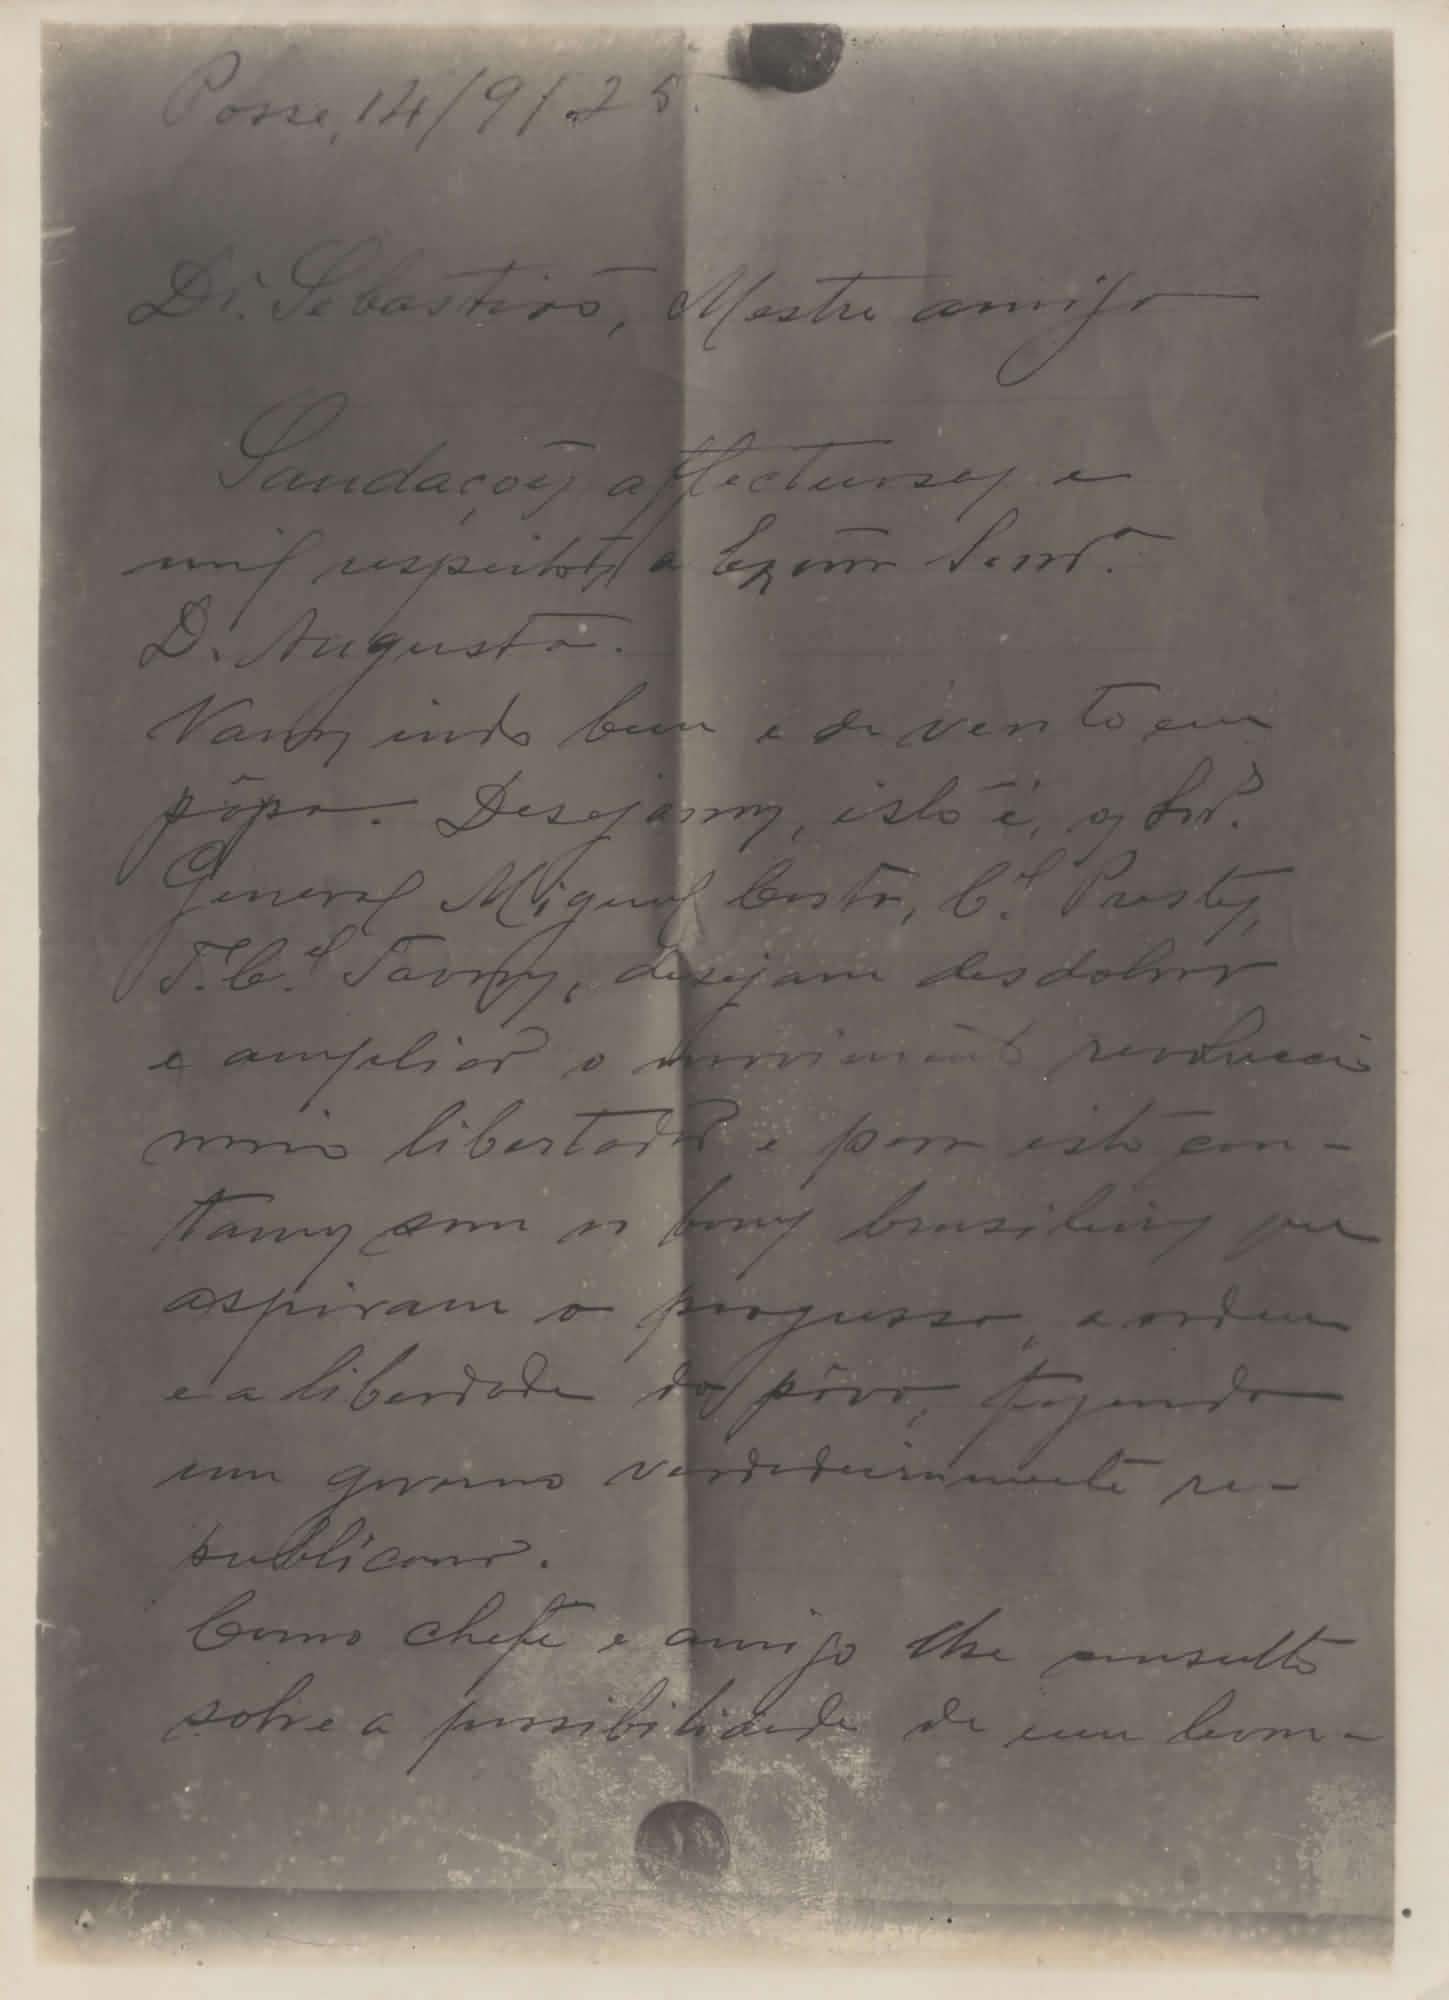 Posse, 14/9/25.
Dr. Sebastião, Mestre amigo
Saudações affectuosas e
mil respeitos a Exmª Senrª.
D. Augusta.
Vamos indo bem e de vento em
pôpa. Desejamos, isto é, os Snrs.
General Miguel Costa, Cel. Prestes,
T. Cel. Tavora, desejam desdobrar
e ampliar o movimento revoluccio
nario libertador e para isto con-
tamos com os bons brasileiros que
aspiram o progresso, a ordem
e a liberdade do pôvo, fazendo
um governo verdadeiramente re-
publicano.
Como chefe e amigo lhe consulto
sobre a possibilidade de um bom-